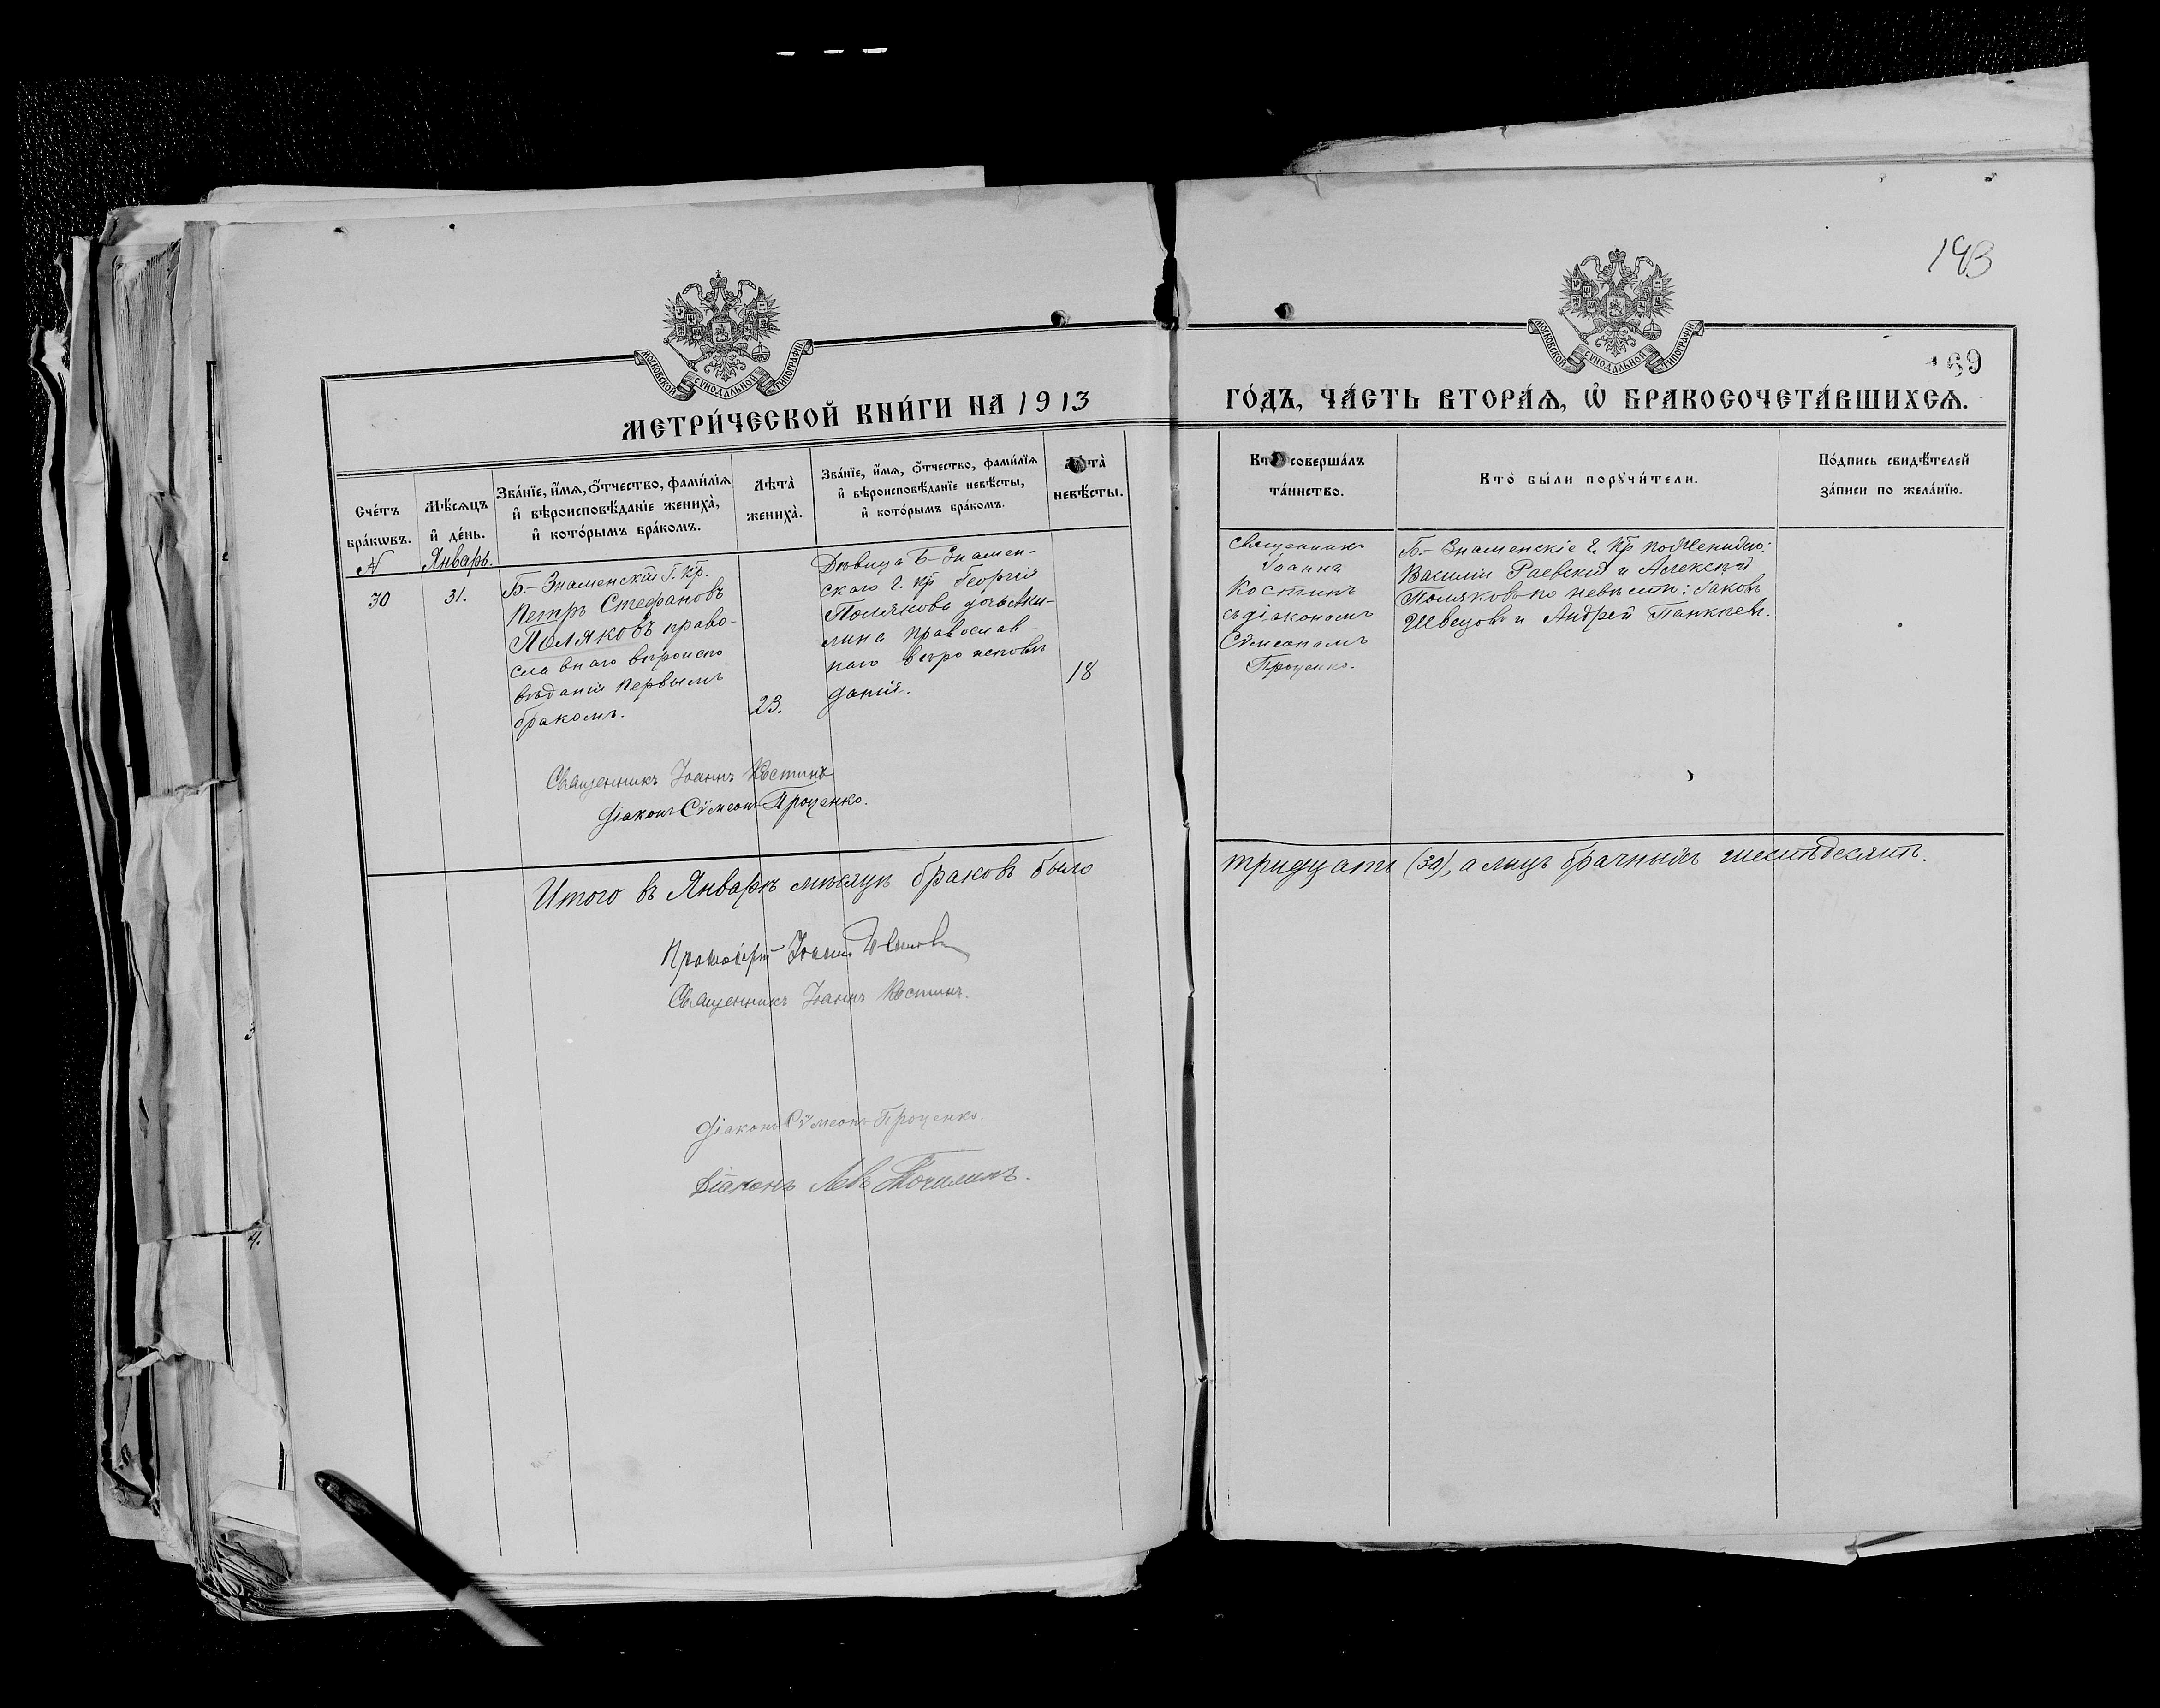 193
169
МОСКОВСКОЙ СѴНОДАЛЬНОЙ ТИПОГРАФІИ
МОСКОВСКОЙ СѴНОДАЛЬНОЙ ТИПОГРАФІИ
МЕТРИ́ЧЕСКОЙ КНИ́ГИ НА 1913
ГО́ДЪ, ЧА́СТЬ ВТОРА́Ѧ, Ѽ БРАКОСОЧЕТА́ВШИХСѦ.
Сче́тъ
бра́кѡвъ.
Мѣ́сѧцъ
и҆ де́нь.
Зва́нїе, и҆́мѧ, ѻ҆́тчество, фами́лїѧ
и҆ вѣроисповѣ́данїе жениха̀,
и҆ кото́рымъ бра́комъ.
Лѣта̀
жениха̀.
Зва́нїе, и҆́мѧ, ѻ҆́тчество, фами́лїѧ
и҆ вѣроисповѣ́данїе невѣ́сты,
и҆ кото́рымъ бра́комъ.
Лѣта̀
невѣ́сты.
Кто̀ соверша́лъ
та́инство.
Кто̀ бы́ли порꙋчи́тели.
По́дпись свидѣ́телей
за́писи по жела́нїю.
N
Январь.
30
31.
Б.-Знаменскій г. кр.
Петръ Стефановъ
Поляковъ право-
славнаго вѣроиспо
вѣданія первымъ
бракомъ.
23.
Дѣвица Б-Знамен-
скаго г. кр Георгія
Полякова дочь Аки-
лина православ
наго вѣроисповѣ
данія.
18
Священникъ
Іоаннъ
Костинъ
съ діакономъ
Сѵмеономъ
Проценко.
Б.-Знаменскіе г. кр по Жениху:
Василій Раевскій и Алексѣй
Поляковъ по невѣстѣ: Іаковъ
Швецовъ и Андрей
Священникъ Іоаннъ Костинъ
Діаконъ Сѵмеонъ Проценко.
Итого въ Январѣ мѣсяцѣ браковъ было
тридцать (30), а лицъ брачныхъ шестьдесятъ.
Протоіерей Іоаннъ
Священникъ Іоаннъ Костинъ.
Діаконъ Сѵмеонъ Проценко.
Діаконъ Левъ
3
4.